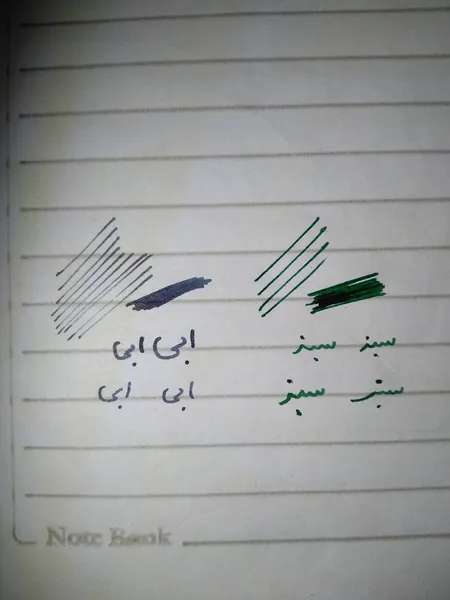 سبز سبز ابی ابی
سبز سبز ابی ابی
Note Book